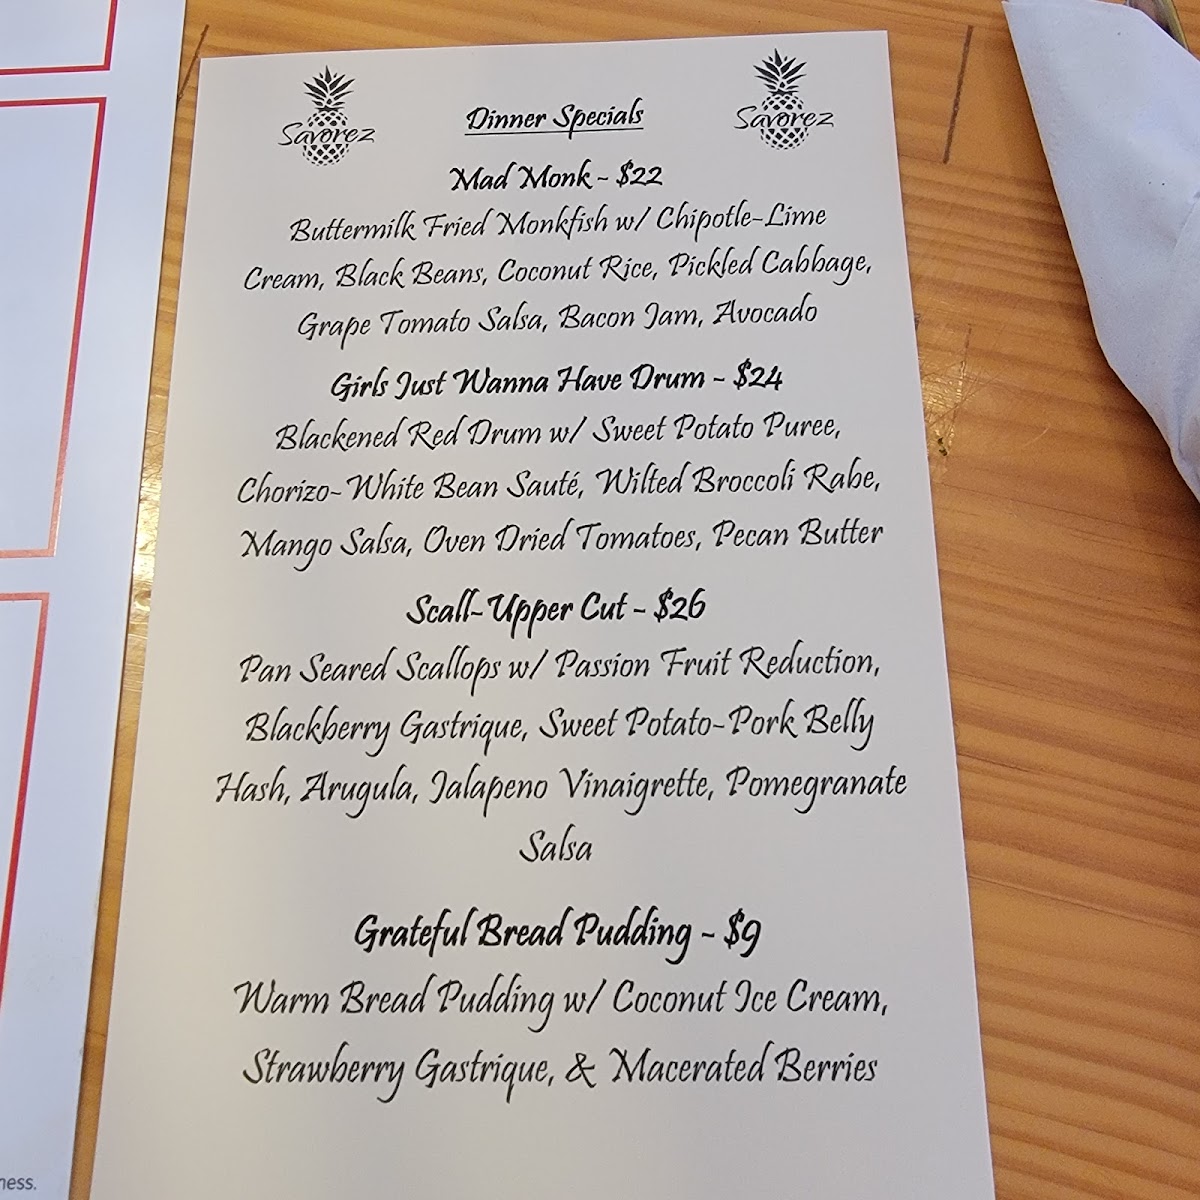 Savorez
Dinner Specials
Savorez
Mad Monk - $22
Buttermilk Fried Monkfish w/ Chipotle-Lime
Cream, Black Beans, Coconut Rice, Pickled Cabbage,
Grape Tomato Salsa, Bacon Jam, Avocado
Girls Just Wanna Have Drum - $24
Blackened Red Drum w/ Sweet Potato Puree,
Chorizo-White Bean Sauté, Wilted Broccoli Rabe,
Mango Salsa, Oven Dried Tomatoes, Pecan Butter
Scall-Upper Cut - $26
Pan Seared Scallops w/ Passion Fruit Reduction,
Blackberry Gastrique, Sweet Potato-Pork Belly
Hash, Arugula, Jalapeno Vinaigrette, Pomegranate
Salsa
Grateful Bread Pudding - $9
Warm Bread Pudding w/ Coconut Ice Cream,
Strawberry Gastrique, & Macerated Berries